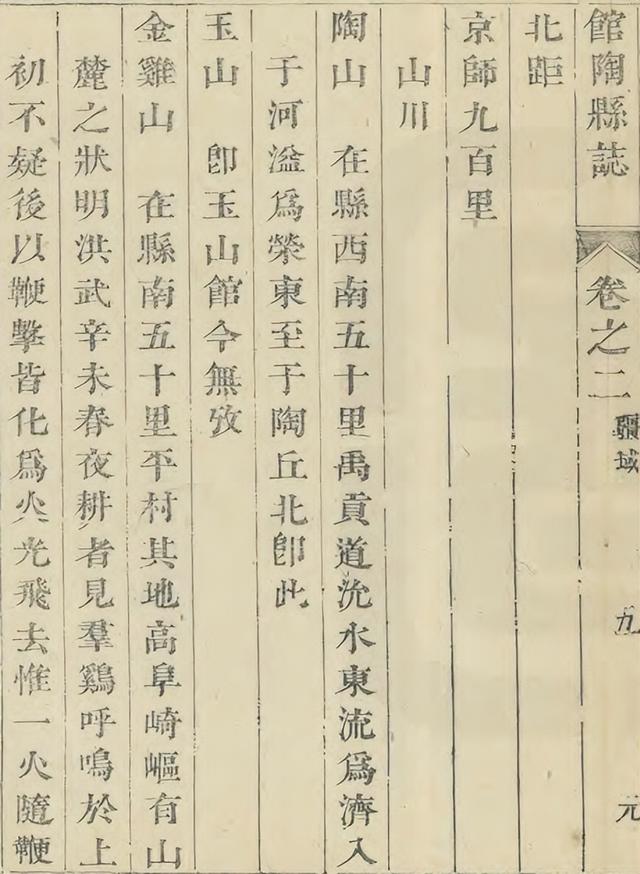 館陶縣誌 卷之二 疆域 九 元
北距
京師九百里
山川
陶山 在縣西南五十里禹貢道沇水東流爲濟入
于河溢爲滎東至于陶丘北卽此
玉山 卽玉山館今無攷
金雞山 在縣南五十里平村其地高阜崎嶇有山
麓之狀明洪武辛未春夜耕者見羣鷄呼鳴於上
初不疑後以鞭擊皆化爲火光飛去惟一火隨鞭